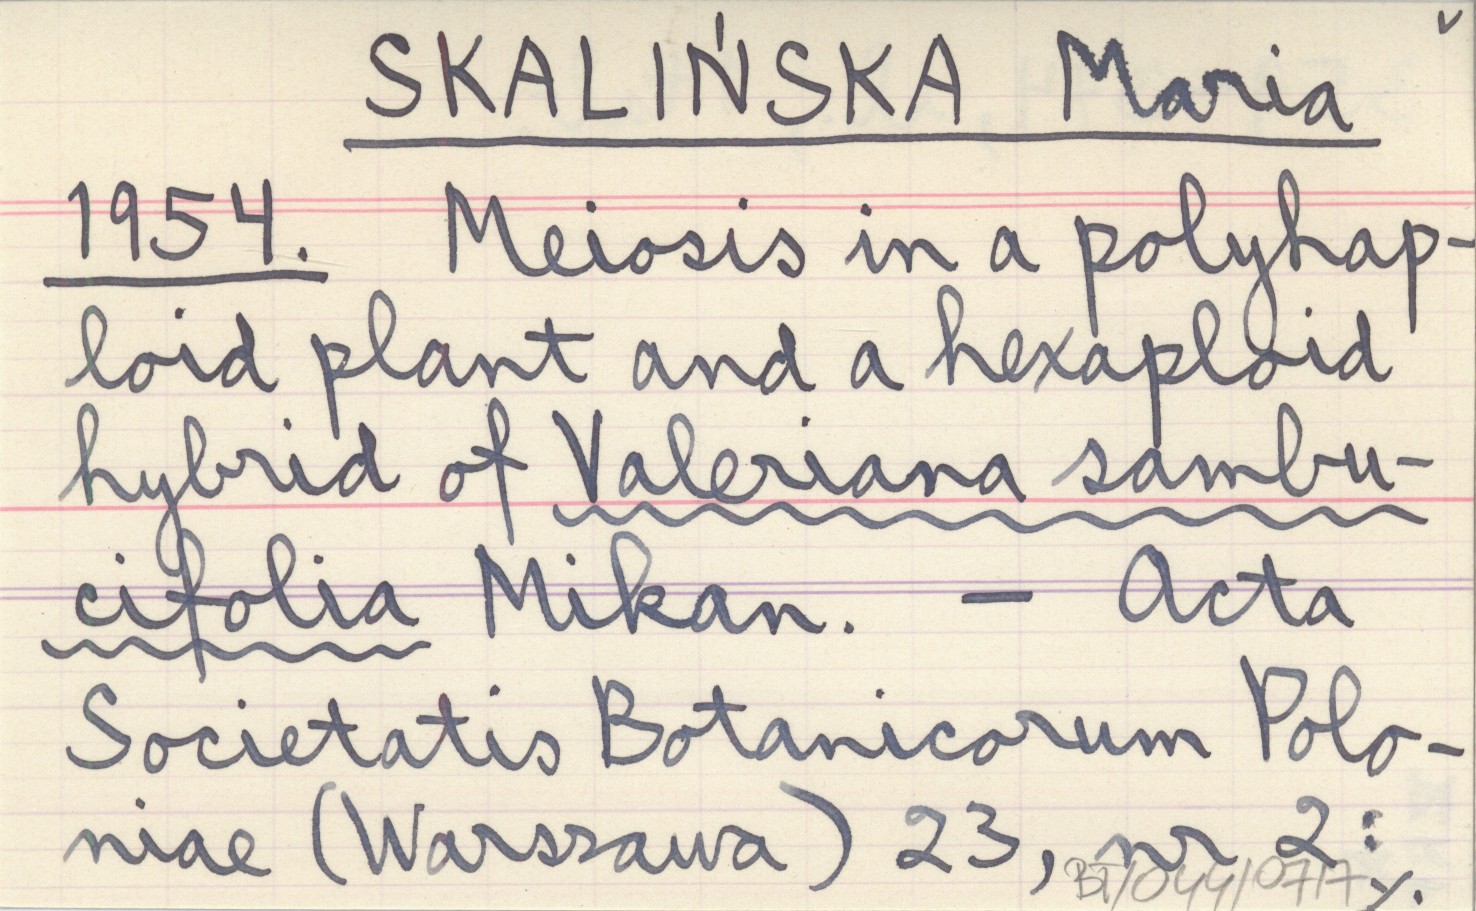 SKALIŃSKA Maria
1954. Meiosis in a polyhap-
loid plant and a hexaploid
hybrid of Valeriana sambu-
cifolia Mikan. — Acta
Societatis Botanicorum Polo-
niae (Warszawa) 23, nr 2:
BT/044/0717 ./.